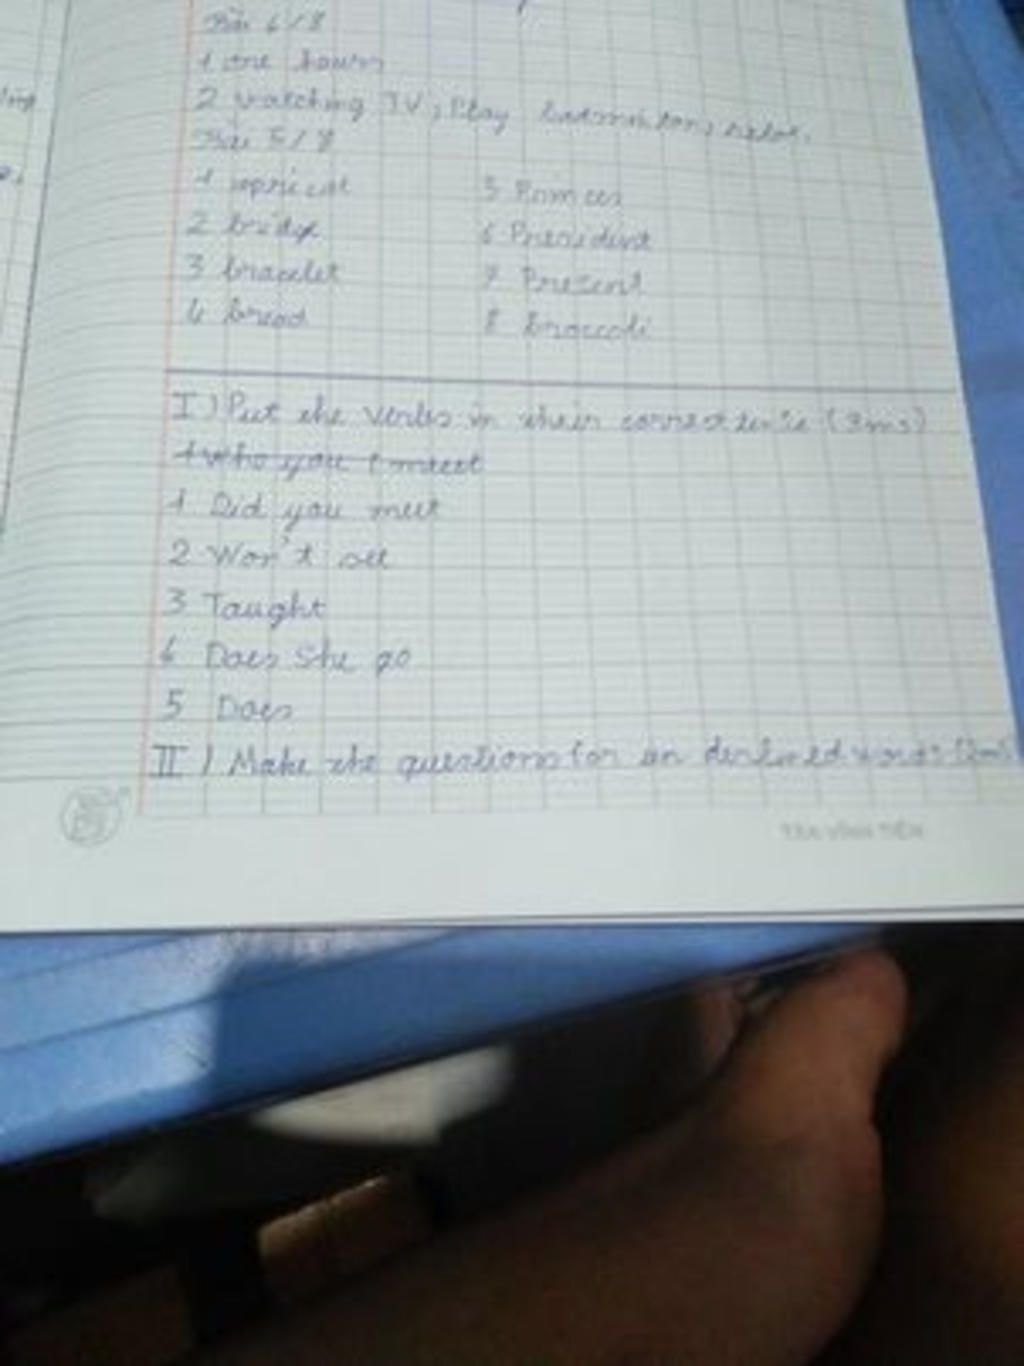 Bài 6/8
1 one hours
2 watching TV, Play badminton,
Bài 5/8
1 apricot
5 Princess
2 bridge
6 President
3 bracelet
7 Present
4 bread
8 broccoli
I) Put the verbs in their correct tense (3ms)
1 Who you meet
1 Did you meet
2 Won't see
3 Taught
4 Does She go
5 Does
II) Make the questions for un derlined words (2ms)